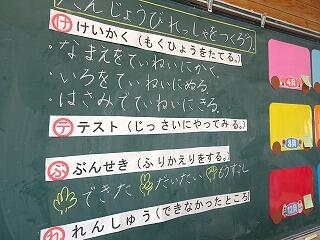 たんじょうびれっしゃをつくろう。
け けいかく(もくひょうをたてる。)
・なまえをていねいにかく。
・いろをていねいにぬる。
・はさみでていねいにきる。
テ テスト(じっさいにやってみる。)
ぶ ぶんせき(ふりかえりをする。)
できた だいたい もうすこし
れ れんしゅう(できなかったところ